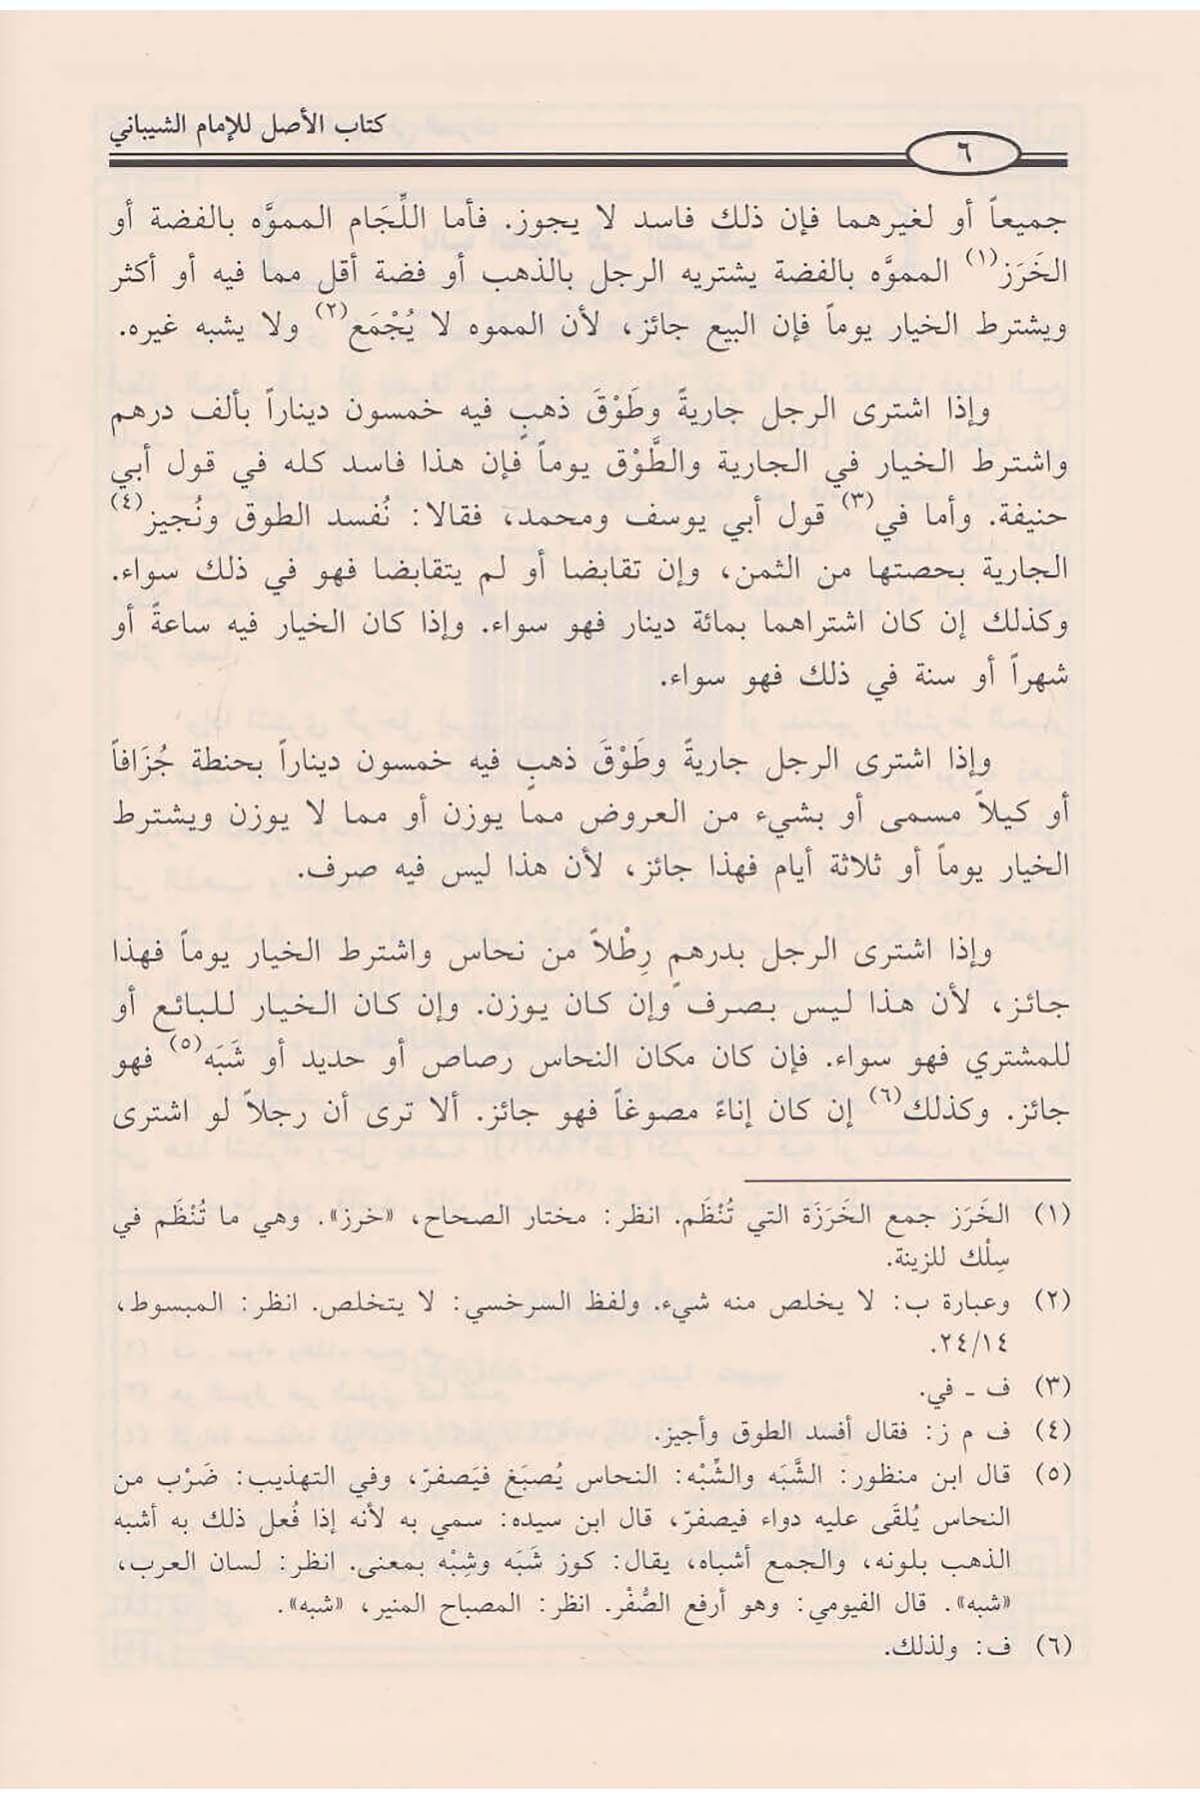 كتاب الأصل للإمام الشيباني
٦
جميعاً أو لغيرهما فإن ذلك فاسد لا يجوز. فأما اللِّجَام المموَّه بالفضة أو
الخَرَز(١) المموَّه بالفضة يشتريه الرجل بالذهب أو فضة أقل مما فيه أو أكثر
ويشترط الخيار يوماً فإن البيع جائز، لأن المموه لا يُجْمَع(٢) ولا يشبه غيره.
وإذا اشترى الرجل جاريةً وطَوْقَ ذهبٍ فيه خمسون ديناراً بألف درهم
واشترط الخيار في الجارية والطَّوْق يوماً فإن هذا فاسد كله في قول أبي
حنيفة. وأما في(٣) قول أبي يوسف ومحمد، فقالا: نُفسد الطوق ونُجيز(٤)
الجارية بحصتها من الثمن، وإن تقابضا أو لم يتقابضا فهو في ذلك سواء.
وكذلك إن كان اشتراهما بمائة دينار فهو سواء. وإذا كان الخيار فيه ساعةً أو
شهراً أو سنة في ذلك فهو سواء.
وإذا اشترى الرجل جاريةً وطَوْقَ ذهبٍ فيه خمسون ديناراً بحنطة جُزَافاً
أو كيلاً مسمى أو بشيء من العروض مما يوزن أو مما لا يوزن ويشترط
الخيار يوماً أو ثلاثة أيام فهذا جائز، لأن هذا ليس فيه صرف.
وإذا اشترى الرجل بدرهمٍ رِطْلاً من نحاس واشترط الخيار يوماً فهذا
جائز، لأن هذا ليس بصرف وإن كان يوزن. وإن كان الخيار للبائع أو
للمشتري فهو سواء. فإن كان مكان النحاس رصاص أو حديد أو شَبَه(٥) فهو
جائز. وكذلك(٦) إن كان إناءً مصوغاً فهو جائز. ألا ترى أن رجلاً لو اشترى
(١) الخَرَز جمع الخَرَزَة التي تُنْظَم. انظر: مختار الصحاح، «خرز». وهي ما تُنْظَم في
سِلْك للزينة.
(٢) وعبارة ب: لا يخلص منه شيء. ولفظ السرخسي: لا يتخلص. انظر: المبسوط،
٢٤/١٤.
(٣) ف ـ في.
(٤) ف م ز: فقال أفسد الطوق وأجيز.
(٥) قال ابن منظور: الشَّبَه والشِّبْه: النحاس يُصبَغ فيَصفرّ، وفي التهذيب: ضَرْب من
النحاس يُلقَى عليه دواء فيصفرّ، قال ابن سيده: سمي به لأنه إذا فُعل ذلك به أشبه
الذهب بلونه، والجمع أشباه، يقال: كوز شَبَه وشِبْه بمعنى. انظر: لسان العرب،
«شبه». قال الفيومي: وهو أرفع الصُّفْر. انظر: المصباح المنير، «شبه».
(٦) ف: ولذلك.